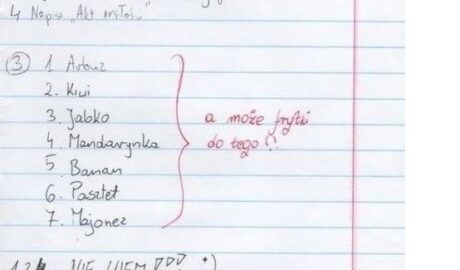 4 Napis "Akt miłości"
③ 1 Arbuz
2. Kiwi
3. Jabko
4. Mandarynka
5 Banan
6. Pasztet
7. Majonez
a może frytki
do tego (!
1.2 NIE WIEM *)